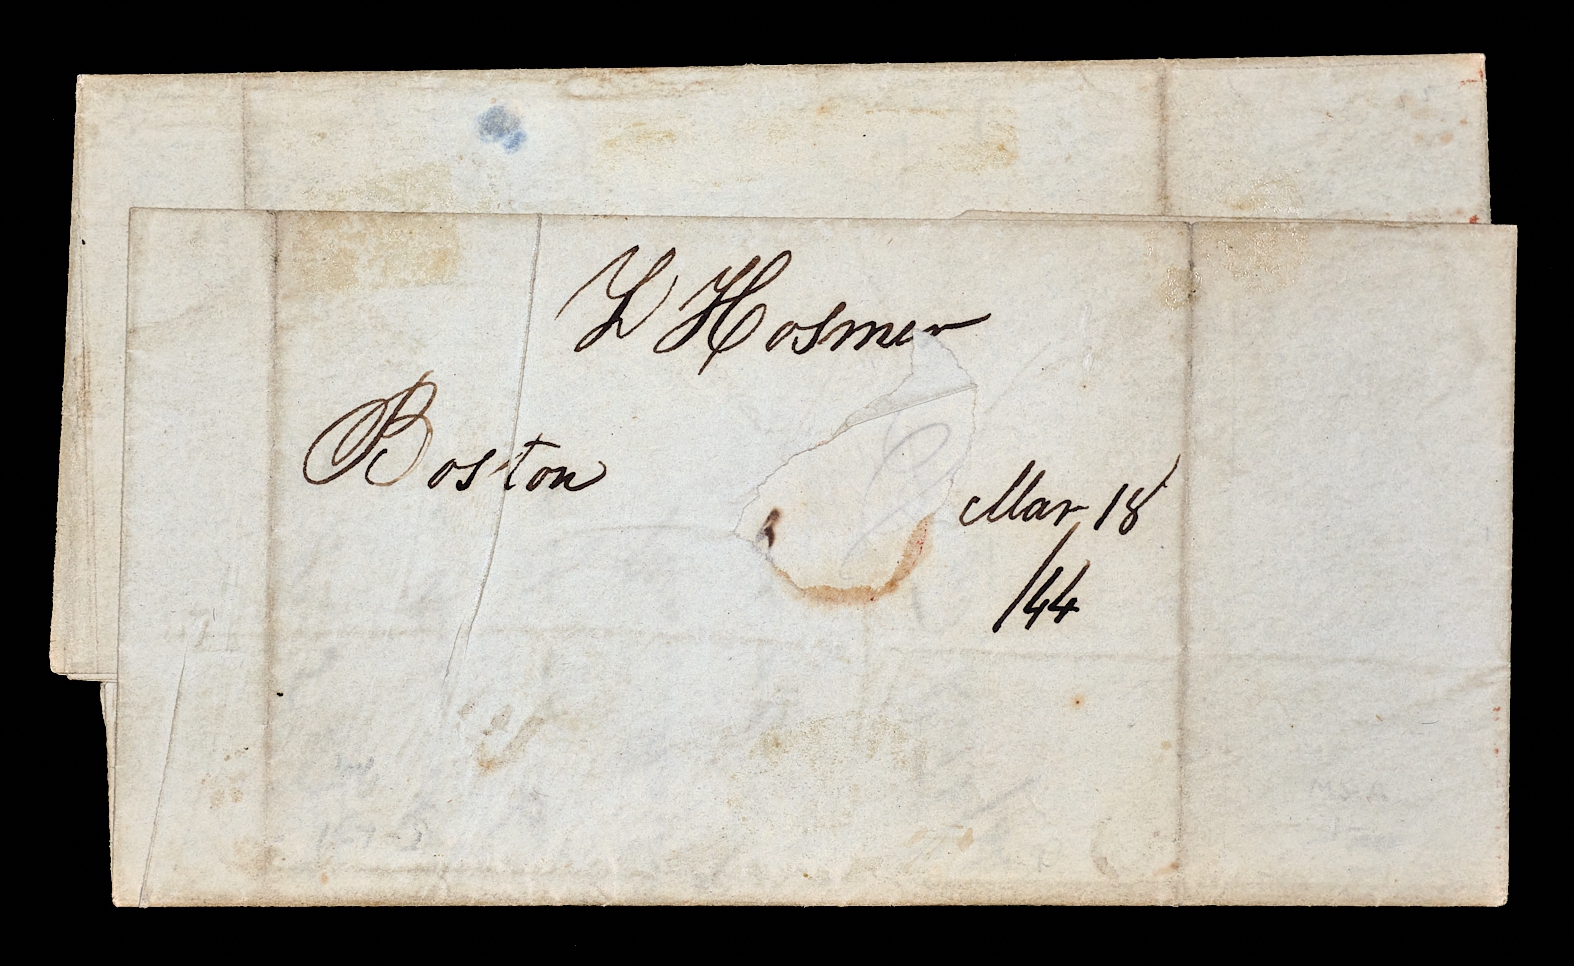 Z Hosmer
Boston
Mar 18
/44